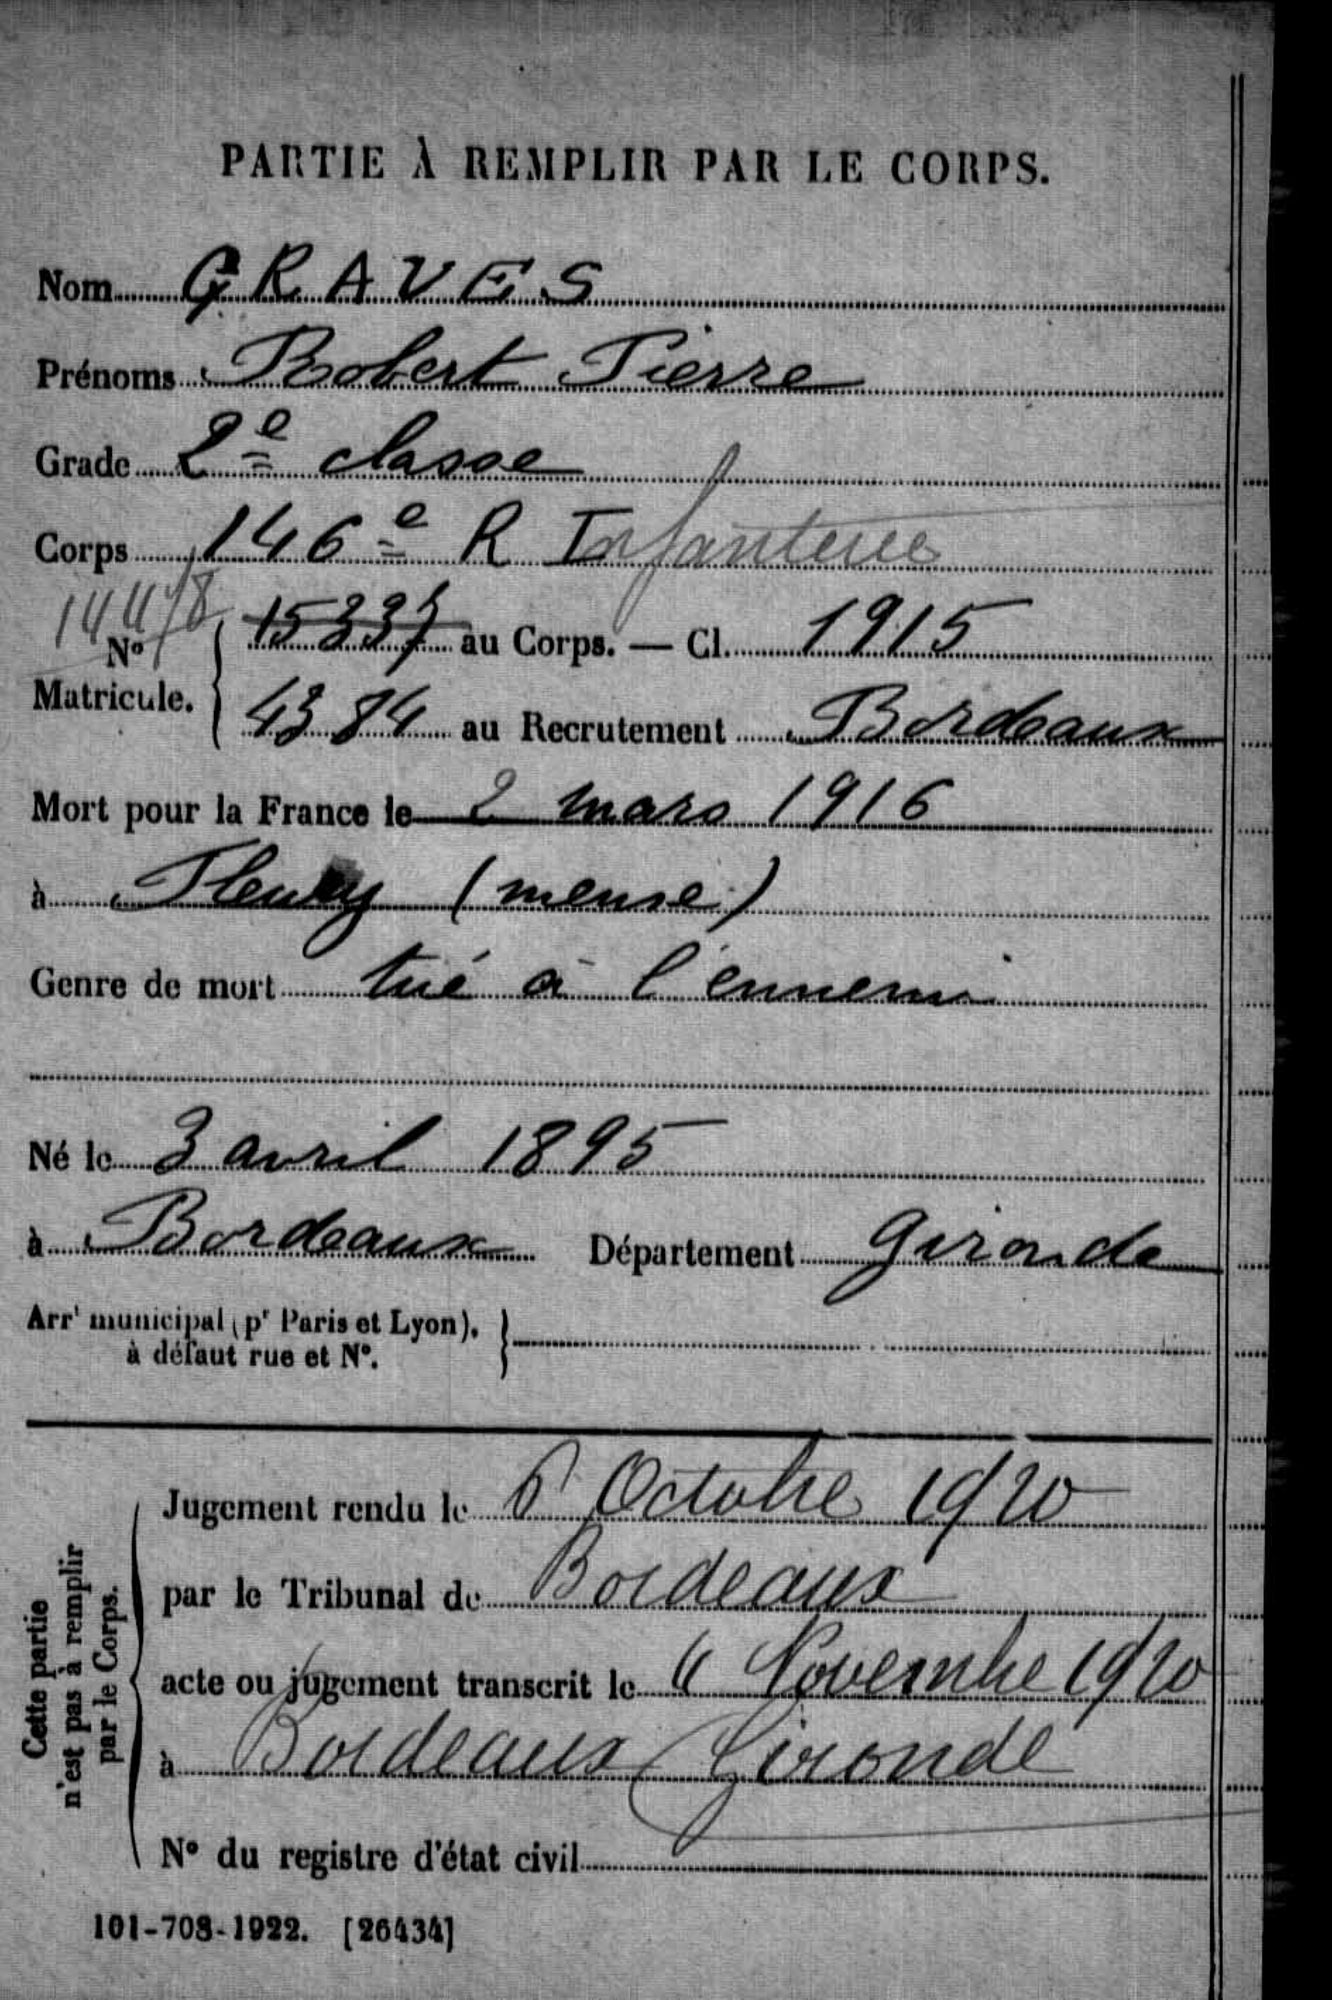 PARTIE À REMPLIR PAR LE CORPS.
Nom GRAVES
Prénoms Robert Pierre
Grade 2e classe
Corps 146e R Infanterie
14478
No Matricule. 15337 au Corps. — Cl. 1915
4384 au Recrutement Bordeaux
Mort pour la France le 2 mars 1916
à Fleury (meuse)
Genre de mort tué à l'ennemi
Né le 3 avril 1895
à Bordeaux Département Gironde
Arrt municipal (pr Paris et Lyon),
à défaut rue et No.
Cette partie
n'est pas à remplir
par le Corps.
Jugement rendu le 6 Octobre 1920
par le Tribunal de Bordeaux
acte ou jugement transcrit le Novembre 1920
à Bordeaux Gironde
No du registre d'état civil
101-708-1922. [26434]